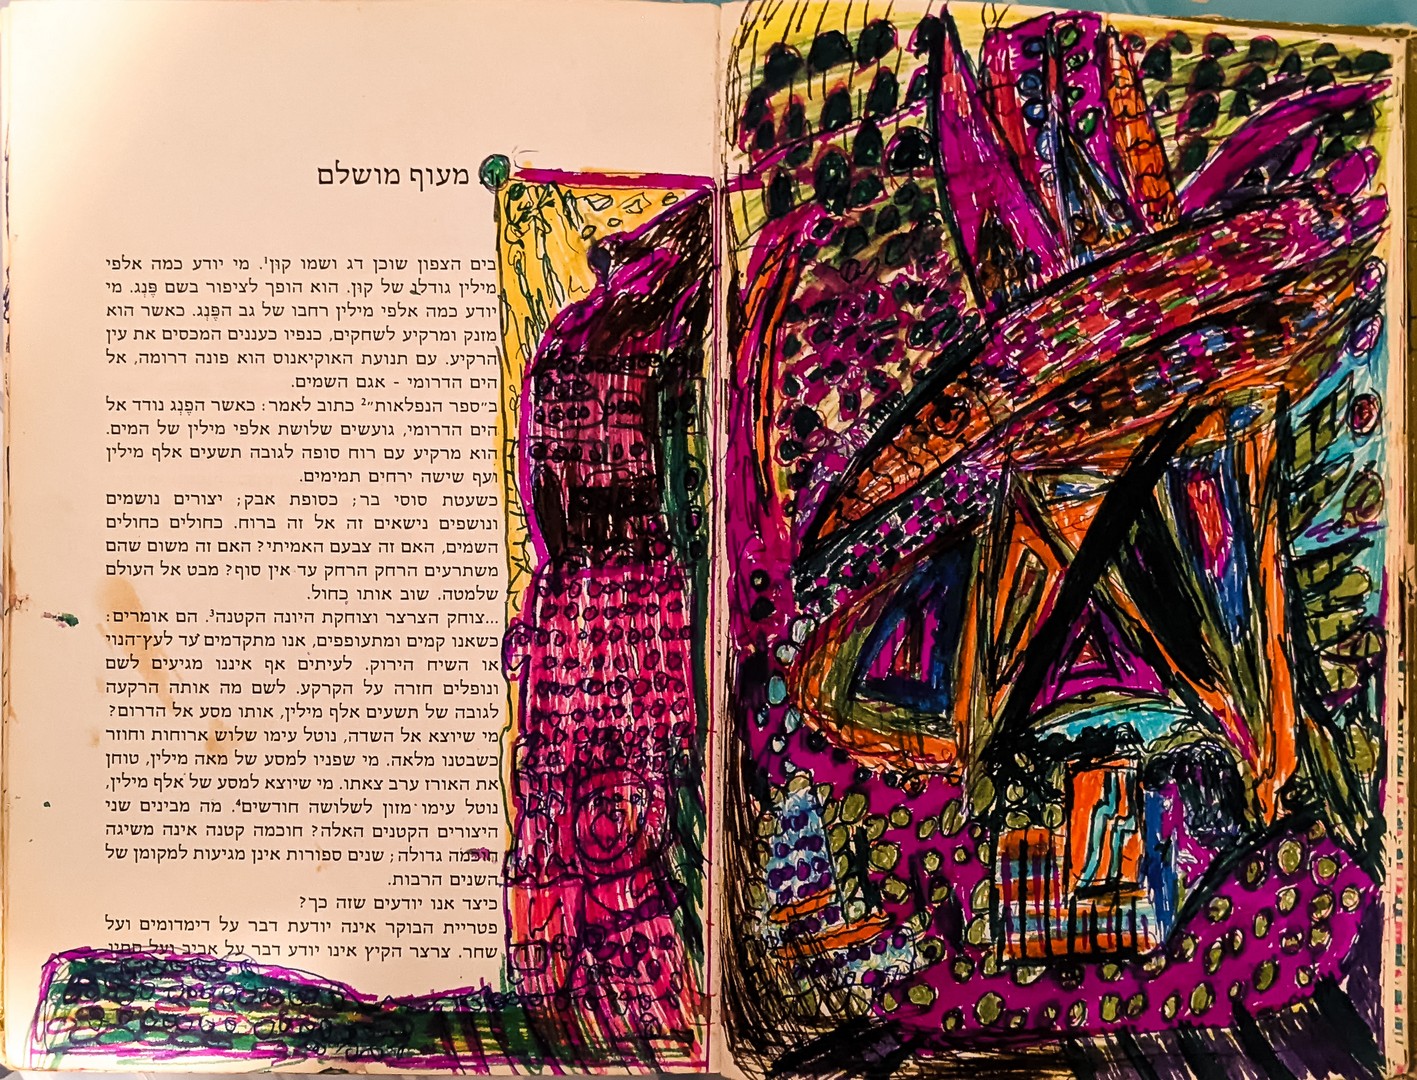 מעוף מושלם
בים הצפון שוכן דג ושמו קוּן¹. מי יודע כמה אלפי
מילין גודלו של קוּן. הוא הופך לציפור בשם פֶּנְג. מי
יודע כמה אלפי מילין רחבו של גב הפֶּנְג. כאשר הוא
מזנק ומרקיע לשחקים, כנפיו כעננים המכסים את עין
הרקיע. עם תנועת האוקיאנוס הוא פונה דרומה, אל
הים הדרומי - אגם השמים.
ב״ספר הנפלאות״² כתוב לאמר: כאשר הפֶּנְג נודד אל
הים הדרומי, גועשים שלושת אלפי מילין של המים.
הוא מרקיע עם רוח סופה לגובה תשעים אלף מילין
ועף שישה ירחים תמימים.
כשעטת סוסי בר; כסופת אבק; יצורים נושמים
ונושפים נישאים זה אל זה ברוח. כחולים כחולים
השמים, האם זה צבעם האמיתי? האם זה משום שהם
משתרעים הרחק הרחק עד אין סוף? מבט אל העולם
שלמטה. שוב אותו כחול.
...צוחק הצרצר וצוחקת היונה הקטנה³. הם אומרים:
כשאנו קמים ומתעופפים, אנו מתקדמים עד לעץ־הנוי
או השיח הירוק. לעיתים אף איננו מגיעים לשם
ונופלים חזרה על הקרקע. לשם מה אותה הרקעה
לגובה של תשעים אלף מילין, אותו מסע אל הדרום?
מי שיוצא אל השדה, נוטל עימו שלוש ארוחות וחוזר
כשבטנו מלאה. מי שפניו למסע של מאה מילין, טוחן
את האורז ערב צאתו. מי שיוצא למסע של אלף מילין,
נוטל עימו מזון לשלושה חודשים⁴. מה מבינים שני
היצורים הקטנים האלה? חוכמה קטנה אינה משיגה
חוכמה גדולה; שנים ספורות אינן מגיעות למקומן של
השנים הרבות.
כיצד אנו יודעים שזה כך?
פטריית הבוקר אינה יודעת דבר על דימדומים ועל
שחר. צרצר הקיץ אינו יודע דבר על אביב ועל סתיו.